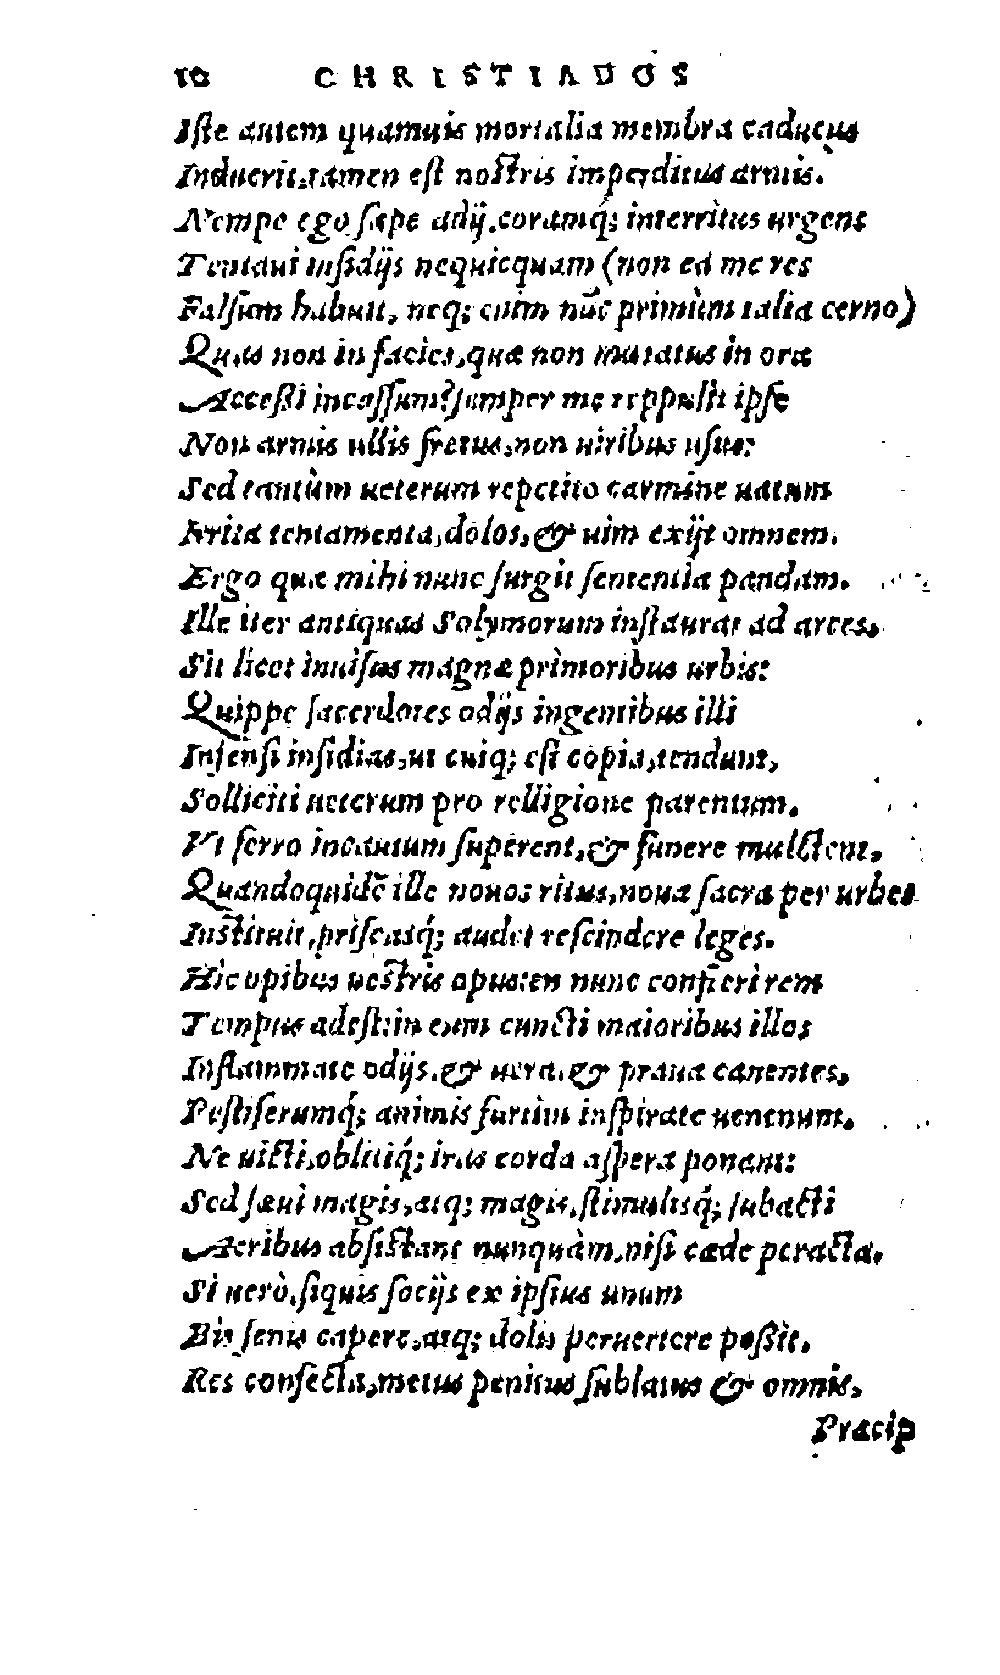 10 CHRISTIADOS
Iſte autem quamuis mortalia membra caducus
Induerit, tamen eſt noſtris imperditus armis.
Nempe ego ſæpe adij, coramq́; interritus urgens
Tentaui inſidijs nequicquam (non ea me res
Falſum habuit, neq; enim nūc primùm talia cerno)
Quas non in facies, quæ non mutatus in ora
Acceſsi incaſſum? ſemper me reppulit ipſe
Non armis ullis fretus, non uiribus uſus:
Sed tantùm ueterum repetito carmine uatum
Irrita tentamenta, dolos, & uim exijt omnem.
Ergo quæ mihi nunc ſurgit ſententia pandam.
Ille iter antiquas Solymorum inſtaurat ad arces,
Sit licet inuiſus magnæ primoribus urbis:
Quippe ſacerdotes odijs ingentibus illi
Infenſi inſidias, ut cuiq; eſt copia, tendunt,
Solliciti ueterum pro relligione parentum.
Vt ferro incautum ſuperent, & funere mulctent,
Quandoquidē ille nouos ritus, noua ſacra per urbes
Inſtituit, priſcasq́; audet reſcindere leges.
Hic opibus ueſtris opus: en nunc confieri rem
Tempus adeſt: in eum cuncti maioribus illos
Inflammate odijs, & uera, & praua canentes,
Peſtiferumq́; animis furtim inſpirate uenenum.
Ne uicti, oblitiq́; iras corda aſpera ponant:
Sed ſæui magis, atq; magis, ſtimulisq́; ſubacti
Acribus abſiſtant nunquàm, niſi cæde peracta.
Si uerò, ſiquis ſocijs ex ipſius unum
Bis ſenis capere, atq; dolis peruertere poſsit,
Res confecta, metus penitus ſublatus & omnis,
Præcip